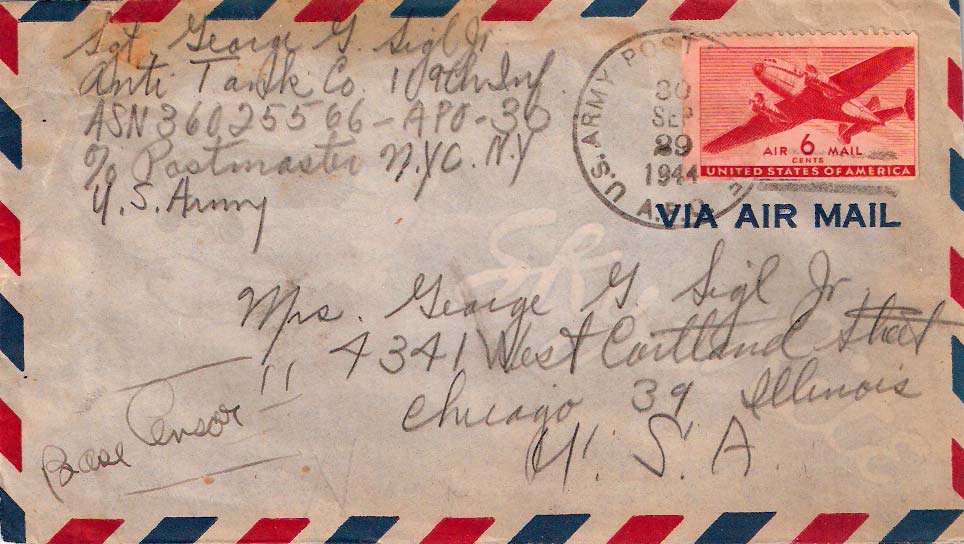 Sgt. George G. Sigl Jr
Anti Tank Co. 109th Inf.
ASN 36025566 - APO - 30
c/o Postmaster N.Y.C. N.Y
U.S. Army
U.S. ARMY POST
30
SEP
29
1944
A.P.O.
AIR 6 MAIL
CENTS
UNITED STATES OF AMERICA
VIA AIR MAIL
Mrs. George G. Sigl Jr.
4341 West Cortland Street
Chicago 39 Illinois
U. S. A.
Base Censor